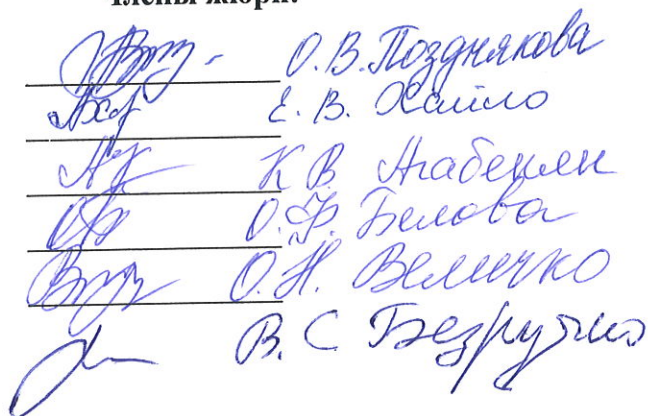 Члены жюри:
О.В. Позднякова
Е.В. Хайло
К.В. Агабекян
О.Ф. Белова
О.Н. Величко
В.С Безручко